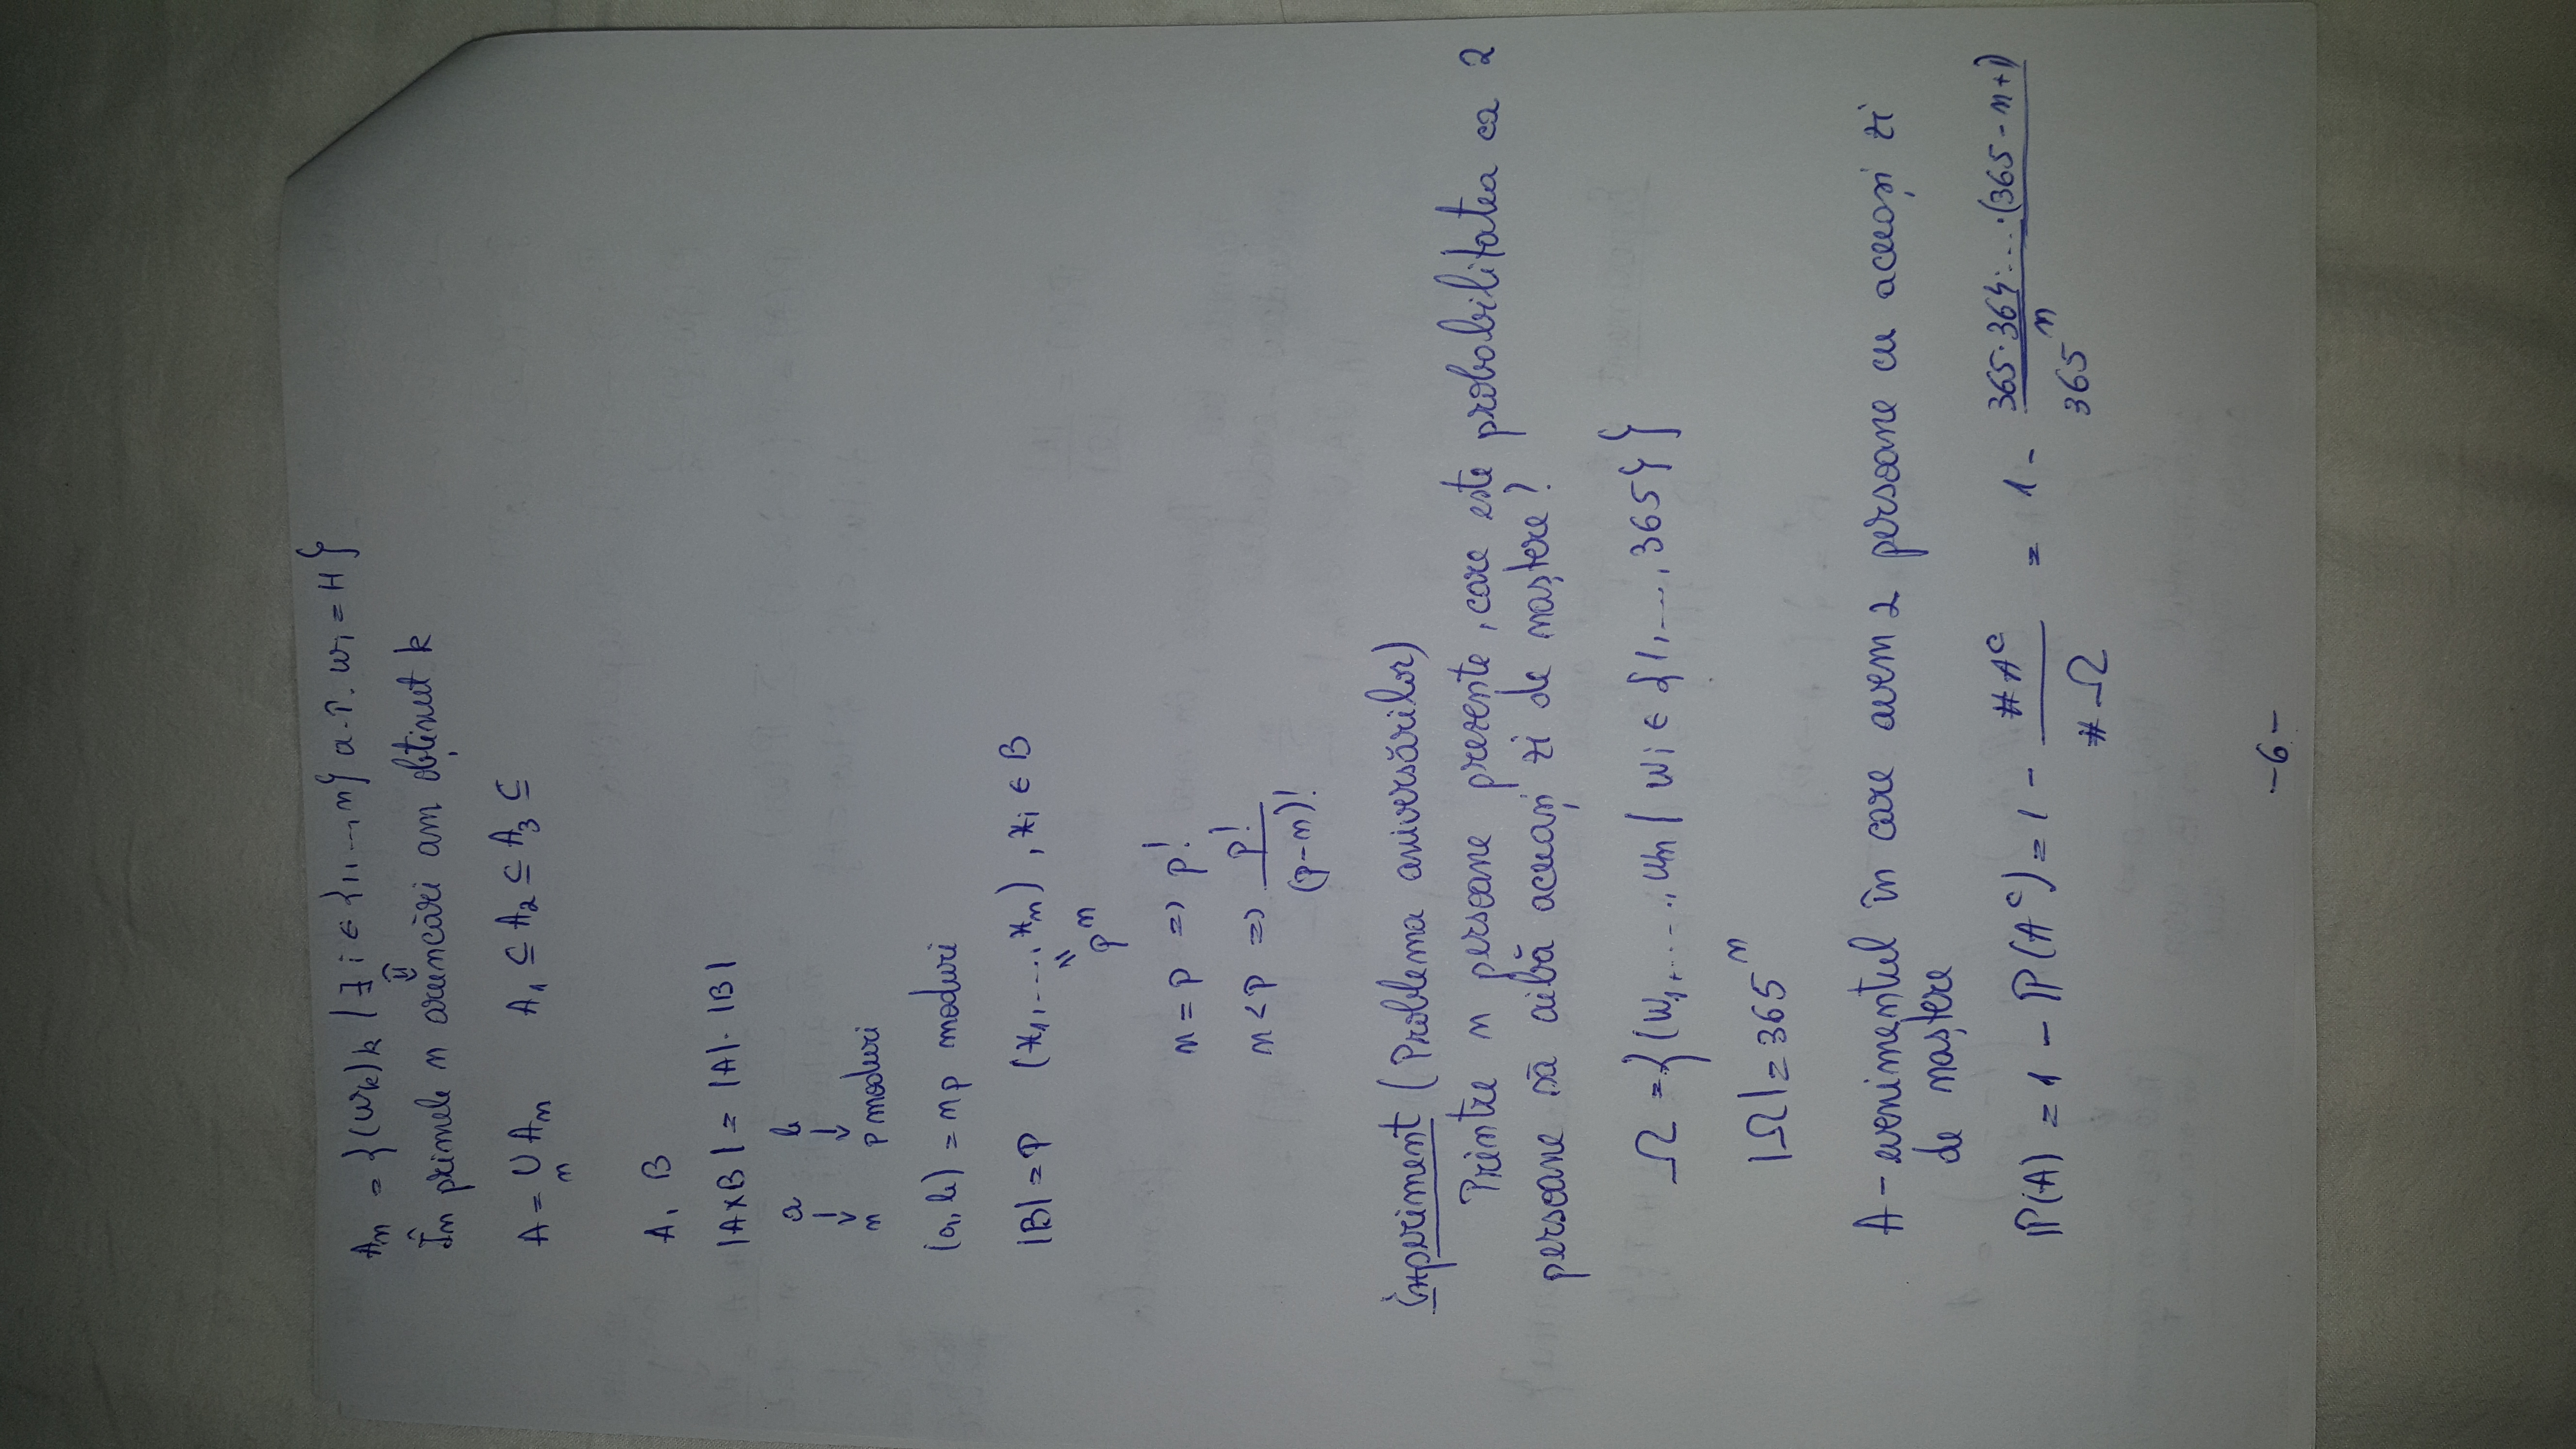 An = {(wk)k / ∃ i ∈ {1, ..., n} a.î. wi = H}
⇕
În primele n aruncări am obținut k
A = ∪ An    A1 ⊆ A2 ⊆ A3 ⊆
n
A, B
|A×B| = |A|·|B|
a    b
↓    ↓
n    p moduri
(a, b) = np moduri
|B| = p    (x1, ..., xn), xi ∈ B
=
p^n
n = p => p!
n < p => p!/(p-n)!
Experiment (Problema aniversărilor)
Printre n persoane prezente, care este probabilitatea ca 2
persoane să aibă aceeași zi de naștere?
Ω = {(w1, ....., wn / wi ∈ {1, ..., 365}}
|Ω| = 365^n
A - evenimentul în care avem 2 persoane cu aceeași zi
de naștere
ℙ(A) = 1 - ℙ(A^c) = 1 - #A^c/#Ω = 1 - 365·364·...·(365-n+1)/365^n
-6-